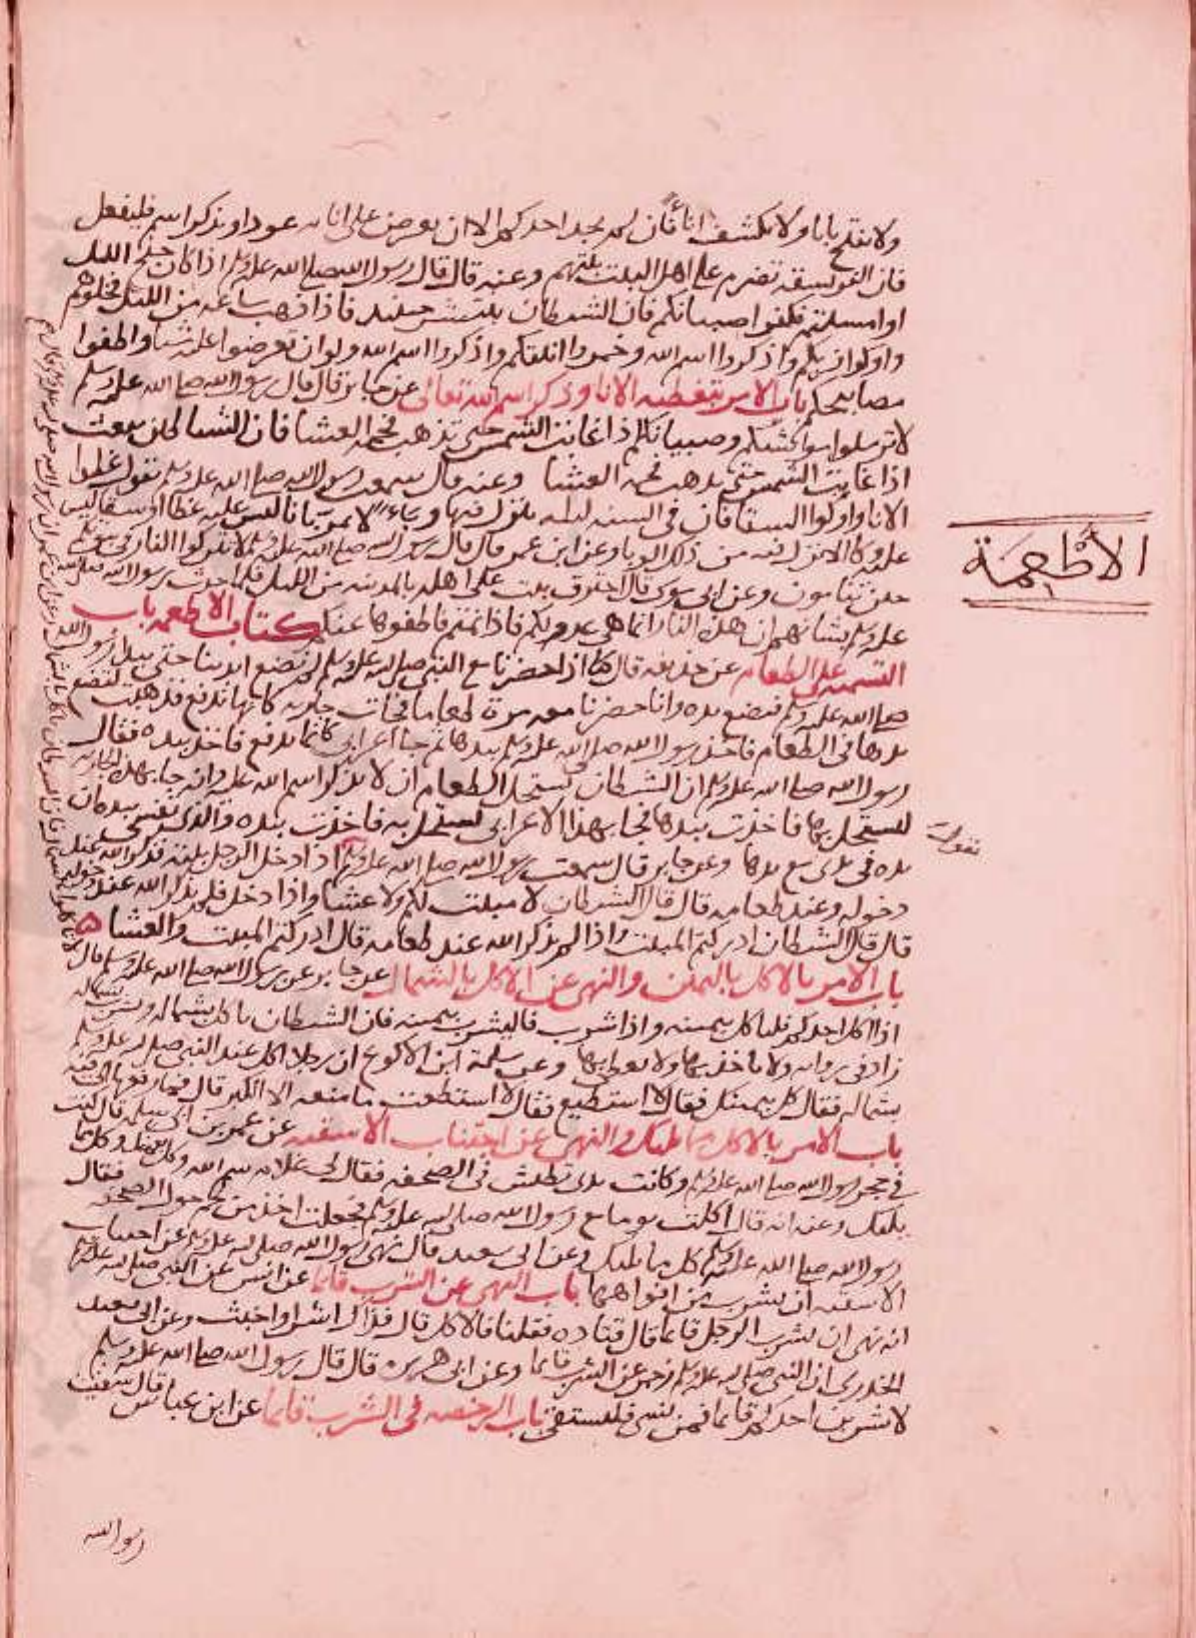 ولا يفتح بابا ولا يكشف اناء فان لم يجد احدكم الا ان يعرض على انائه عودا ويذكر اسم الله فليفعل
فان الفويسقة تضرم على اهل البيت بيتهم وعنه قال قال رسول الله صلى الله عليه وسلم اذا كان جنح الليل
او امسيتم فكفوا صبيانكم فان الشيطان ينتشر حينئذ فاذا ذهب ساعة من الليل فخلوهم
واوكوا قربكم واذكروا اسم الله وخمروا انيتكم واذكروا اسم الله ولو ان تعرضوا عليه شيا واطفوا
مصابيحكم باب الامر بتغطية الانا وذكر اسم الله تعالى عن جابر قال قال رسول الله صلى الله عليه وسلم
لا ترسلوا مواشيكم وصبيانكم اذا غابت الشمس حتى تذهب فحمة العشا فان الشياطين تبعث
اذا غابت الشمس حتى تذهب فحمة العشا وعنه قال سمعت رسول الله صلى الله عليه وسلم يقول غطوا
الانا واوكوا السقا فان في السنة ليلة ينزل فيها وباء لا يمر بانا ليس عليه غطا او سقا ليس
عليه وكا الا نزل فيه من ذلك الوبا وعن ابن عمر قال قال رسول الله صلى الله عليه وسلم لا تتركوا النار في بيوتكم
حين تنامون وعن ابي موسى قال احترق بيت على اهله بالمدينة من الليل فلما حدث رسول الله صلى الله
عليه وسلم بشانهم ان هذه النار انما هي عدو لكم فاذا نمتم فاطفوها عنكم كتاب الاطعمة باب
التسمية على الطعام عن حذيفة قال كنا اذا حضرنا مع النبي صلى الله عليه وسلم لم نضع ايدينا حتى يبدا رسول الله
صلى الله عليه وسلم فيضع يده وانا حضرنا معه مرة طعاما فجات جارية كانها تدفع فذهبت لتضع
يدها في الطعام فاخذ رسول الله صلى الله عليه وسلم بيدها ثم جا اعرابي كانما يدفع فاخذ بيده فقال
رسول الله صلى الله عليه وسلم ان الشيطان يستحل الطعام ان لا يذكر اسم الله عليه وانه جا بهذه الجارية
ليستحل بها فاخذت بيدها فجا بهذا الاعرابي ليستحل به فاخذت بيده والذي نفسي بيده ان
يده في يدي مع يدها وعن جابر قال سمعت رسول الله صلى الله عليه وسلم اذا دخل الرجل بيته فذكر الله عند
دخوله وعند طعامه قال قال الشيطان لا مبيت لكم ولا عشا واذا دخل فلم يذكر الله عند دخوله
قال قال الشيطان ادركتم المبيت واذا لم يذكر الله عند طعامه قال ادركتم المبيت والعشا
باب الامر بالاكل باليمين والنهي عن الاكل بالشمال عن جابر عن رسول الله صلى الله عليه وسلم قال
اذا اكل احدكم فلياكل بيمينه واذا شرب فاليشرب بيمينه فان الشيطان ياكل بشماله ويشرب بشماله
زاد في رواية ولا ياخذ بها ولا يعطي بها وعن سلمة ابن الاكوع ان رجلا اكل عند النبي صلى الله عليه وسلم
بشماله فقال كل بيمينك فقال لا استطيع فقال لا استطعت ما منعه الا الكبر قال فما رفعها الى فيه
باب الامر بالاكل مما يليك والنهي عن اختناث الاسقية عن عمر بن ابي سلمة قال كنت
في حجر رسول الله صلى الله عليه وسلم وكانت يدي تطيش في الصحفة فقال لي يا غلام سم الله وكل بيمينك وكل مما
يليك وعنه انه قال اكلت يوما مع رسول الله صلى الله عليه وسلم فجعلت اخذ من لحم حول الصحفة فقال
رسول الله صلى الله عليه وسلم كل مما يليك وعن ابي سعيد قال نهى رسول الله صلى الله عليه وسلم عن اختناث
الاسقية ان يشرب من افواهها باب النهي عن الشرب قائما عن انس عن النبي صلى الله عليه وسلم
انه نهى ان يشرب الرجل قائما قال قتادة فقلنا فالاكل قال فذاك اشر او اخبث وعن ابي سعيد
الخدري ان النبي صلى الله عليه وسلم زجر عن الشرب قائما وعن ابي هريرة قال قال رسول الله صلى الله عليه وسلم
لا يشربن احدكم قائما فمن نسي فليستقي باب الرخصة في الشرب قائما عن ابن عباس قال سقيت
رسول الله
الأطعمة